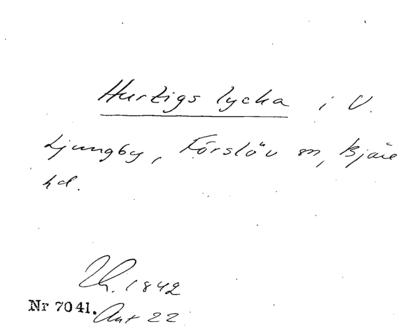 Hurtigs lycka i V.
Ljungby, Förslöv sn, Bjäre
hd.
Uh. 1842
Nr 7041. Ant 22